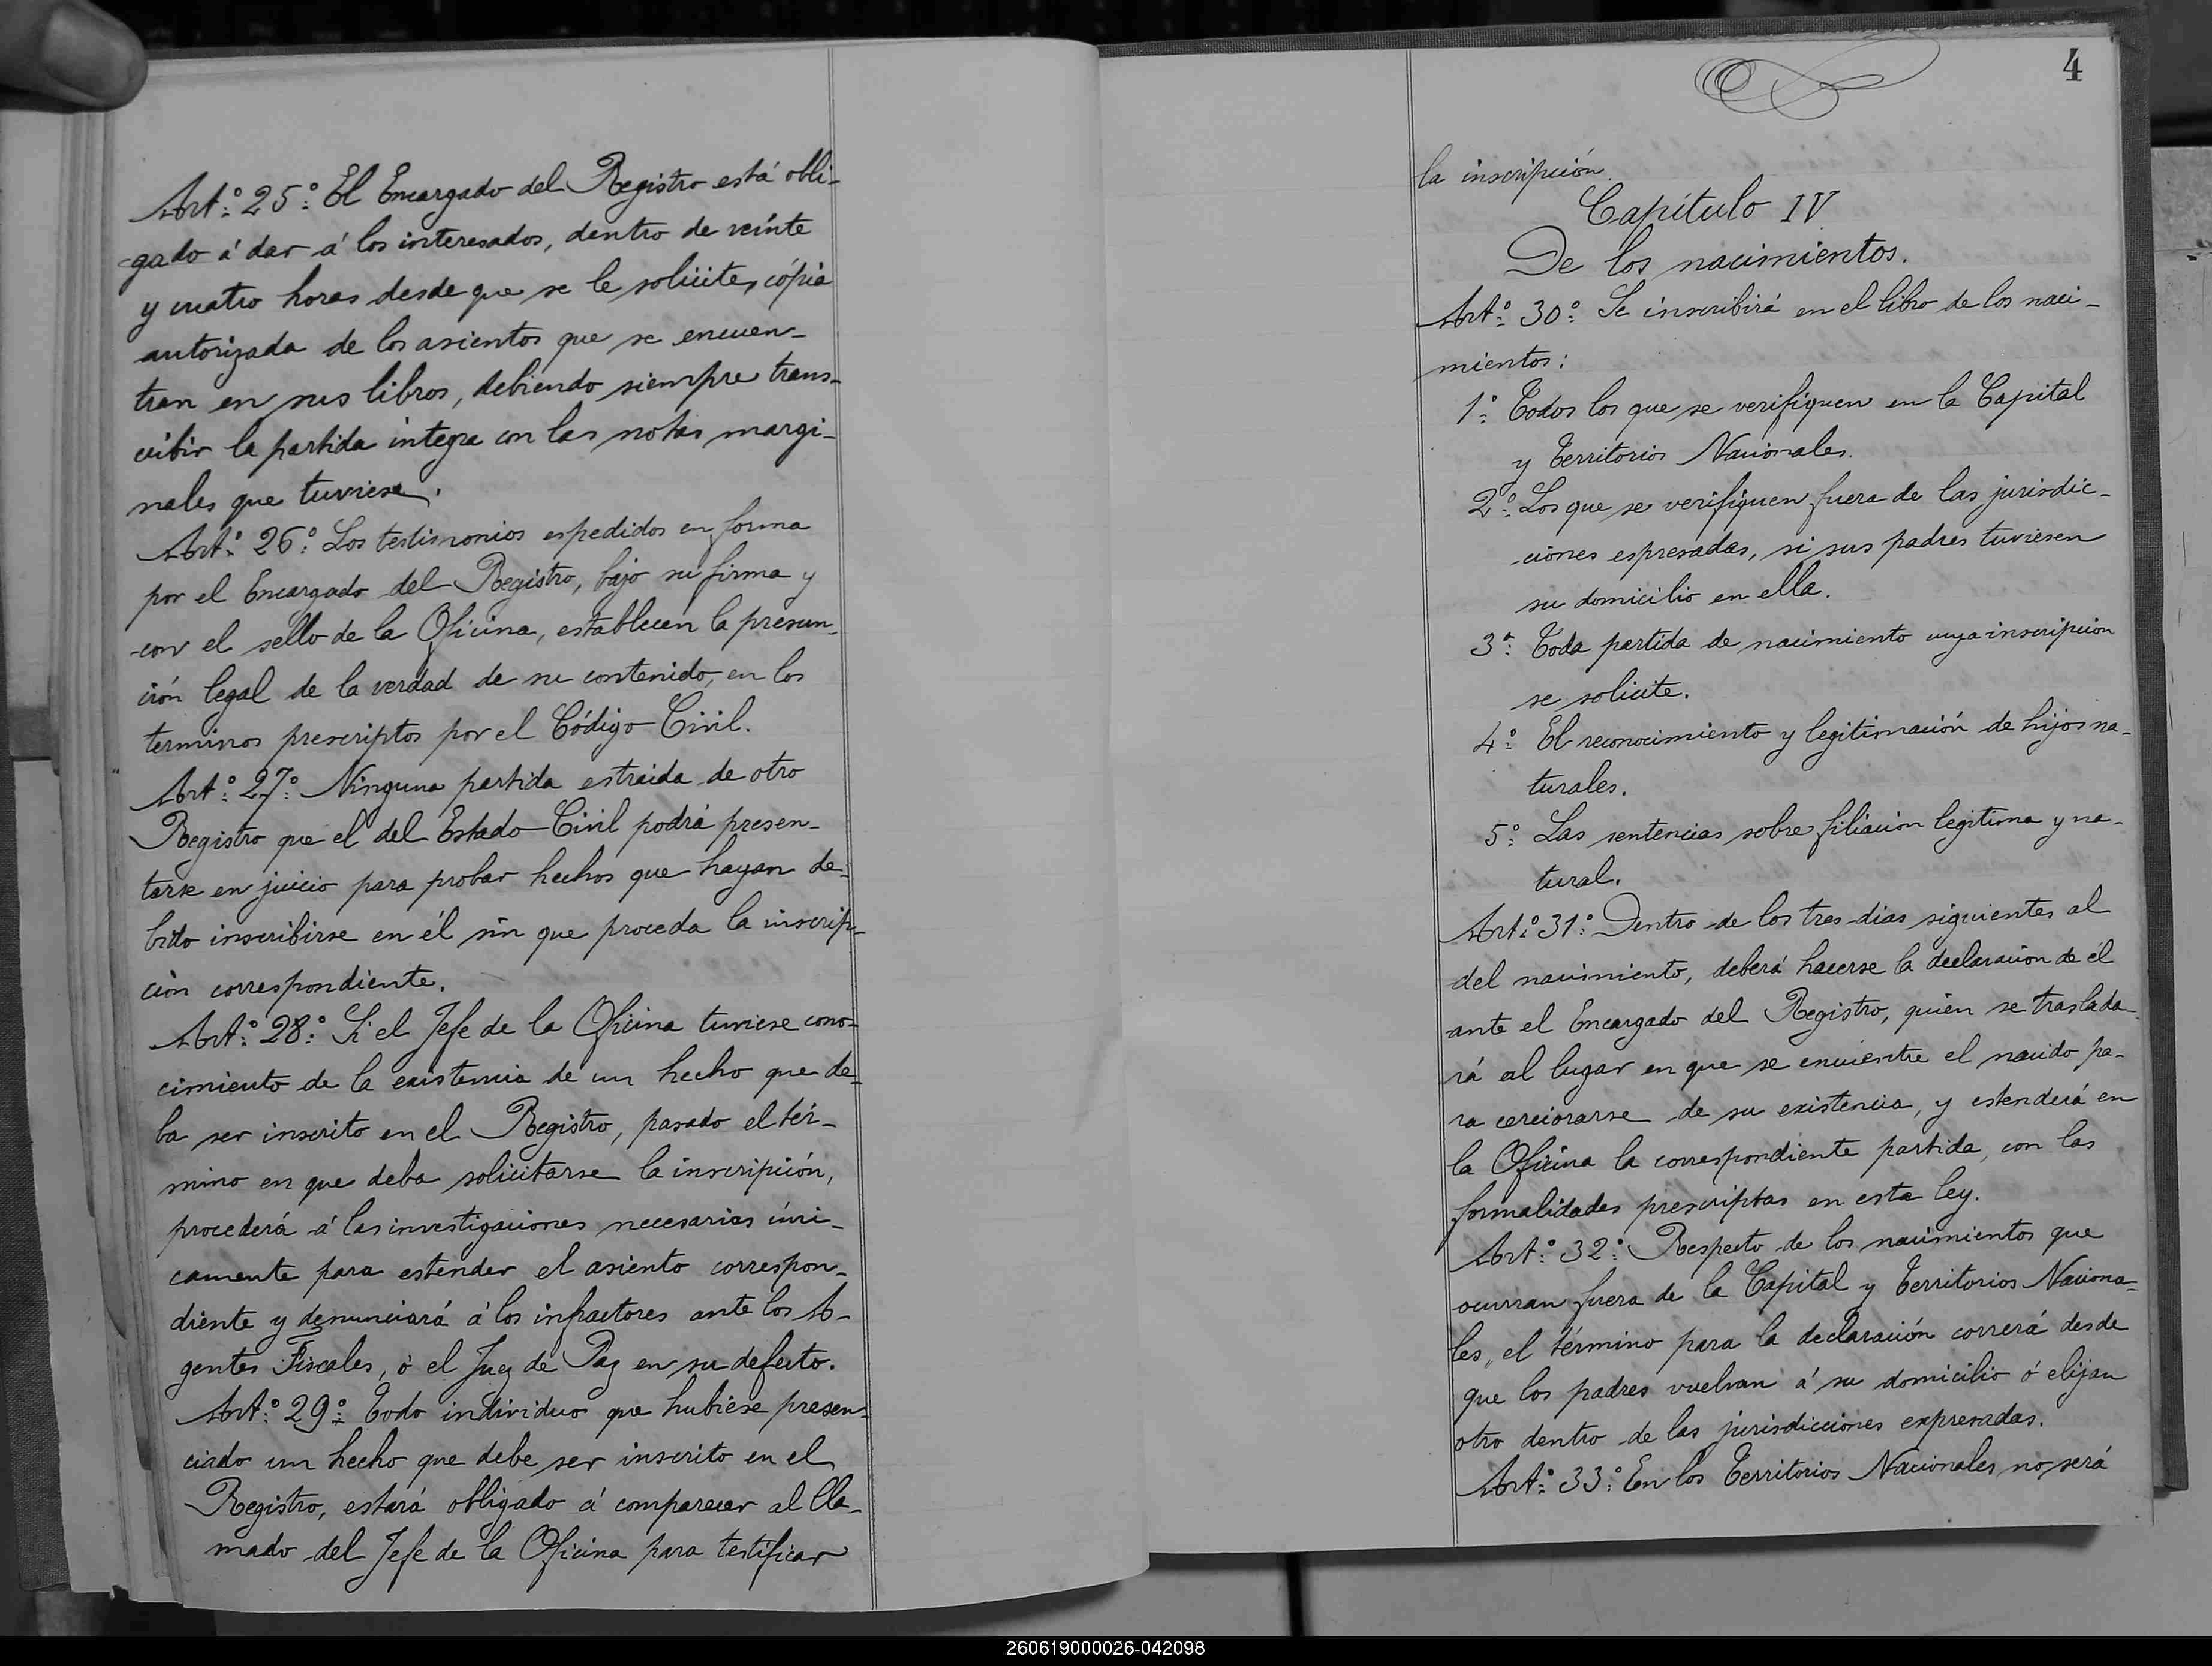 Art.º 25.º El Encargado del Registro está obli-
gado á dar á los interesados, dentro de veinte
y cuatro horas desde que se le solicite, cópia
autorizada de los asientos que se encuen-
tran en sus libros, debiendo siempre trans-
cribir la partida integra con las notas margi-
nales que tuviese.
Art.º 26.º Los testimonios espedidos en forma
por el Encargado del Registro, bajo su firma y
con el sello de la Oficina, establecen la presun-
ción legal de la verdad de su contenido, en los
terminos prescriptos por el Código Civil.
Art.º 27.º Ninguna partida estraida de otro
Registro que el del Estado Civil podrá presen-
tarse en juicio para probar hechos que hayan de-
bido inscribirse en él sin que proceda la inscrip-
ción correspondiente.
Art.º 28.º Si el Jefe de la Oficina tuviese cono-
cimiento de la existencia de un hecho que de-
ba ser inscrito en el Registro, pasado el tér-
mino en que deba solicitarse la inscripción,
procederá á las investigaciones necesarias úni-
camente para estender el asiento correspon-
diente y denunciará á los infractores ante los A-
gentes Fiscales, ó el Juez de Paz en su defecto.
Art.º 29.º Todo individuo que hubiese presen-
ciado un hecho que debe ser inscrito en el
Registro, estará obligado á comparecer al lla-
mado del Jefe de la Oficina para testificar
4
la inscripción.
Capítulo IV
De los nacimientos.
Art.º 30.º Se inscribirá en el libro de los naci-
mientos:
1.º Todos los que se verifiquen en la Capital
y Territorios Nacionales.
2.º Los que se verifiquen fuera de las jurisdic-
ciones espresadas, si sus padres tuviesen
su domicilio en ella.
3.ª Toda partida de nacimiento cuya inscripcion
se solicite.
4.º El reconocimiento y legitimación de hijos na-
turales.
5.º Las sentencias sobre filiación legitima y na-
tural.
Art.º 31.º Dentro de los tres dias siguientes al
del nacimiento, deberá hacerse la declaración de él
ante el Encargado del Registro, quien se traslada-
rá al lugar en que se encuentre el nacido pa-
ra cerciorarse de su existencia, y estenderá en
la Oficina la correspondiente partida, con las
formalidades prescriptas en esta ley.
Art.º 32.º Respecto de los nacimientos que
ocurran fuera de la Capital y Territorios Naciona-
les, el término para la declaración correrá desde
que los padres vuelvan á su domicilio ó elijan
otro dentro de las jurisdicciones expresadas.
Art.º 33.º En los Territorios Nacionales no será
260619000026-042098